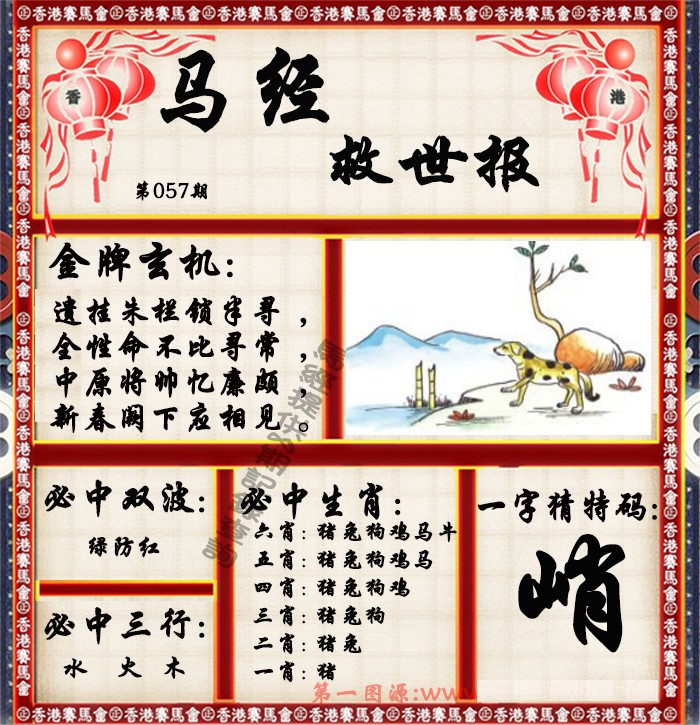 香港賽馬會 正 香港賽馬會 正 香港賽馬會 正 香港賽馬會 正 香港賽馬會
香 港
马经
救世报
第057期
金牌玄机:
遗挂朱栏锁半寻，
全性命不比寻常，
中原将帅忆廉颇，
新春阙下应相见。
必中双波:
绿防红
必中三行:
水 火 木
必中生肖:
六肖: 猪兔狗鸡马牛
五肖: 猪兔狗鸡马
四肖: 猪兔狗鸡
三肖: 猪兔狗
二肖: 猪兔
一肖: 猪
一字猜特码:
峭
第一图源:www